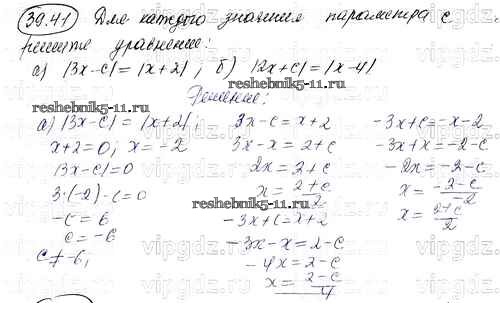 39.41 Для каждого значения параметра с
решите уравнение:
а) |3x-c|=|x+2|; б) |2x+c|=|x-4|
reshebnik5-11.ru
Решение:
а) |3x-c|=|x+2|; 3x-c=x+2 -3x+c=-x-2
x+2=0; x=-2 3x-x=2+c -3x+x=-2-c
|3x-c|=0 2x=2+c -2x=-2-c
3·(-2)-c=0 x=2+c/2 x=-2-c/-2
reshebnik5-11.ru
-c=6 -3x+c=x+2 x=2+c/2
c=-6 -3x-x=2-c
c≠-6; -4x=2-c
x=2-c/4
vipgdz.ru